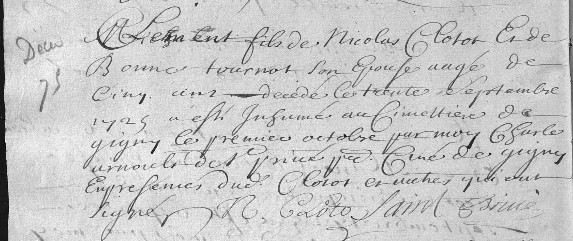 Deces
75
Clement fils de Nicolas Clotot Et de
Bonne tournot son Epouse aagé de
Cinq ans decede le trente Septembre
1725 a esté Inhumé au Cimettiere de
gigny le premier octobre par moy Charle
arnould de St prtre Curé de gigny
En presences dud. Clotot et autres qui ont
signe N. Cloto